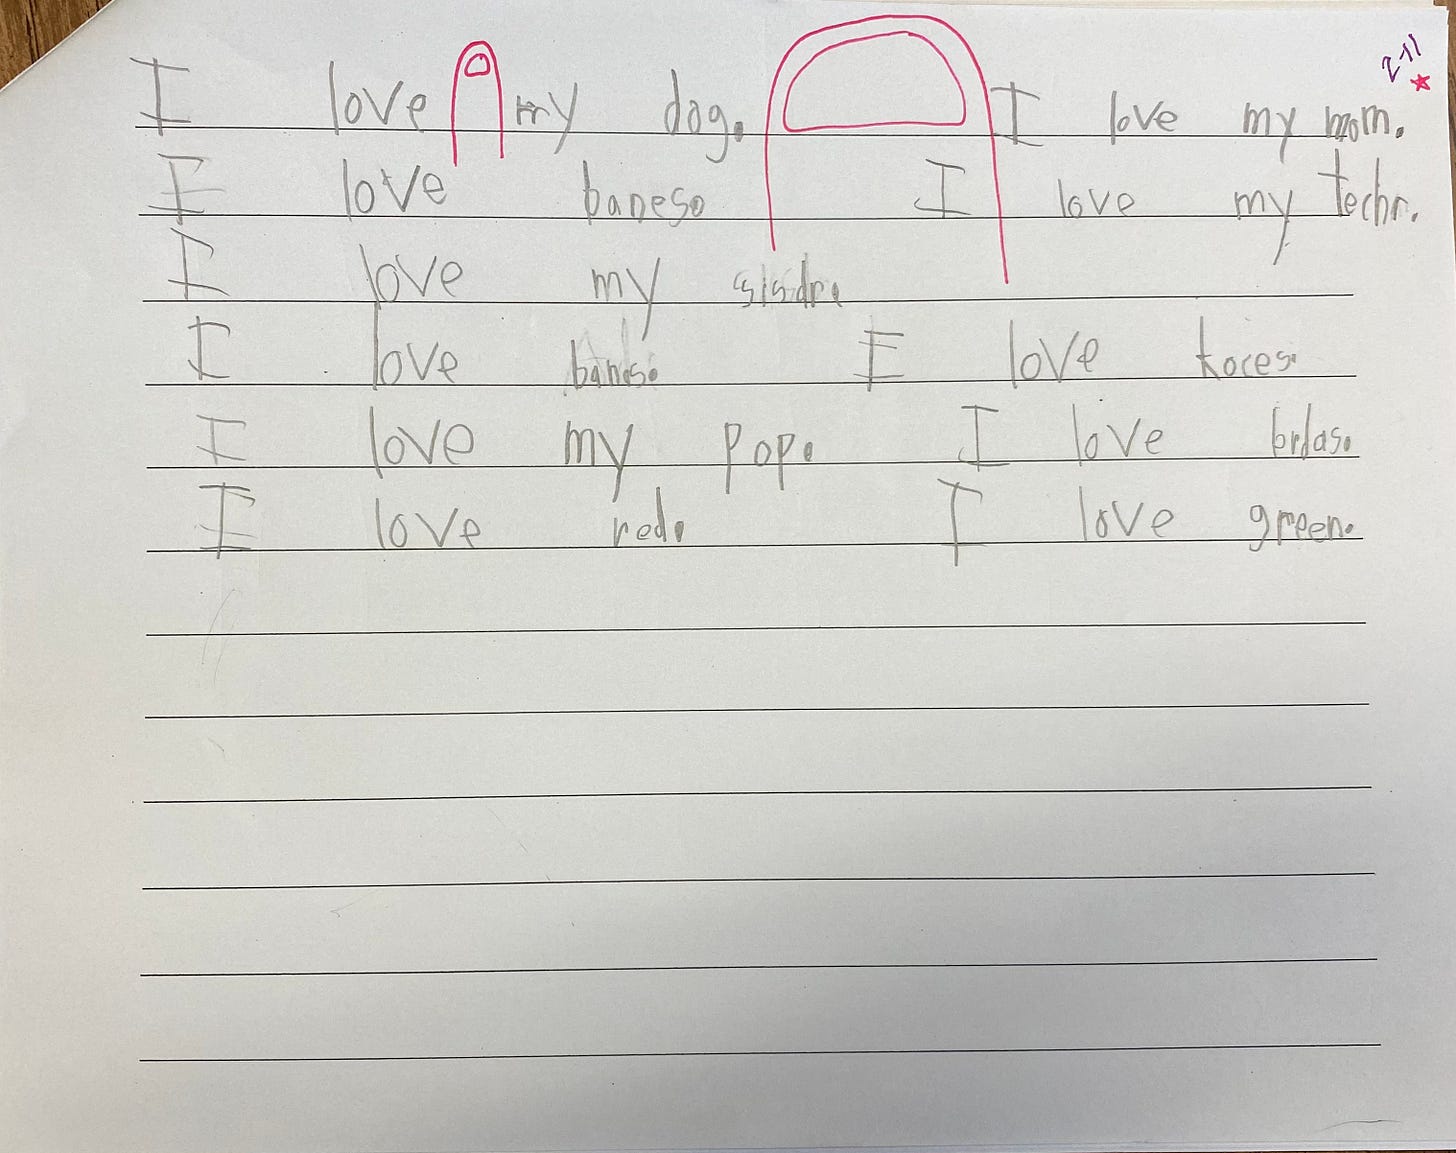 2-11
I love my dog. I love my mom.
I love banes. I love my techr.
I love my sisdr.
I love bands. I love koces.
I love my pop. I love brdas.
I love red. I love green.